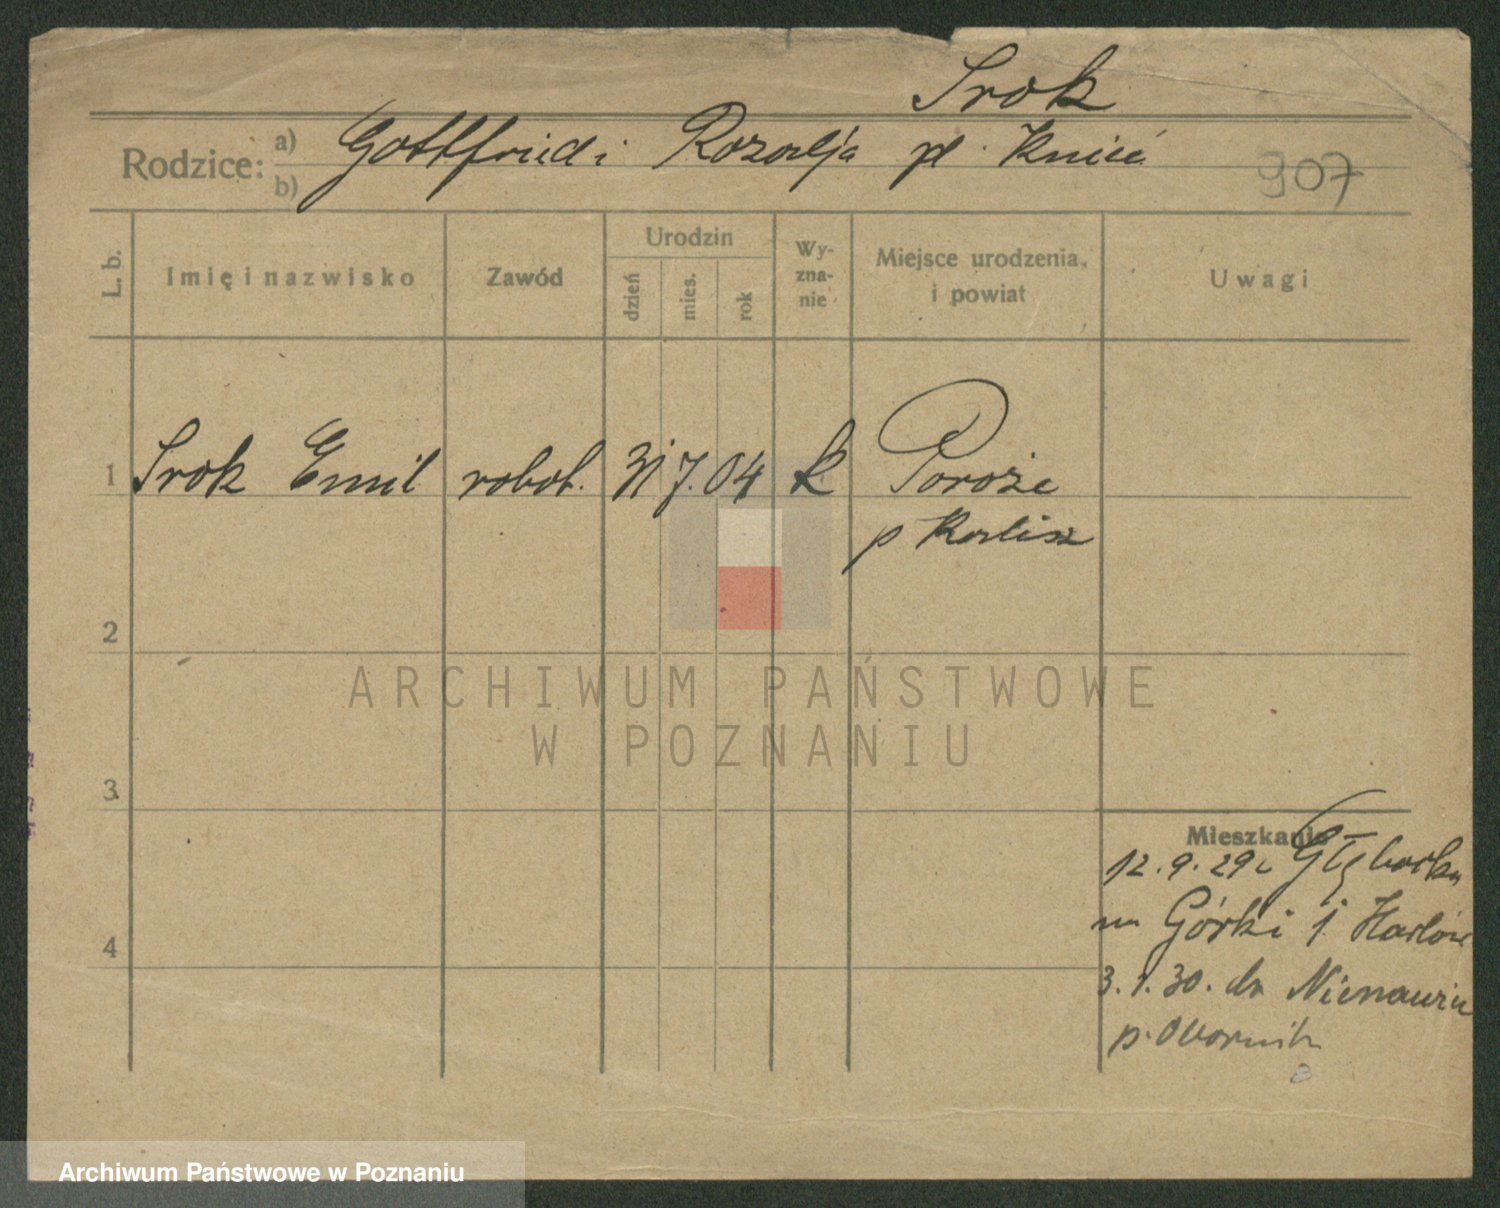 Srok
Rodzice: a) Gottfried i Rozalja
b)
907
L. b.
Imię i nazwisko
Zawód
Urodzin
dzień
mies.
rok
Wy-
zna-
nie
Miejsce urodzenia,
i powiat
Uwagi
1 Srok Emil robot. 31 7. 04 k Poroże
p Kalisz
2
3
4
Mieszkanie
12.9.29 Głęboka
na Górki
3.1.30. do
p. Obornik
ARCHIWUM PAŃSTWOWE
W POZNANIU
Archiwum Państwowe w Poznaniu